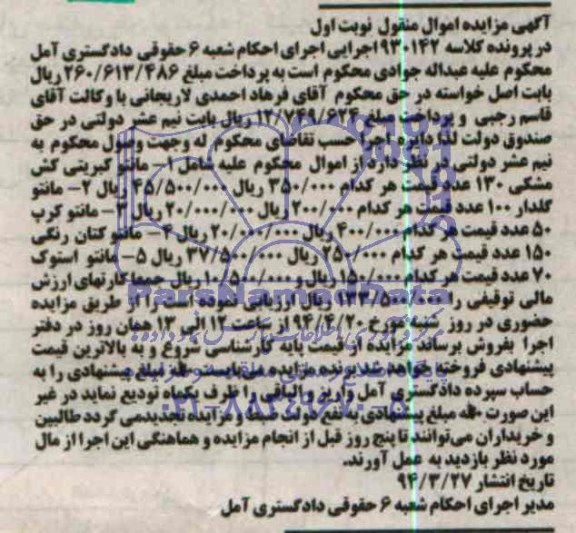 آگهی مزایده اموال منقول نوبت اول
در پرونده کلاسه ۹۳۰۱۴۲ اجرایی اجرای احکام شعبه ۶ حقوقی دادگستری آمل
محکوم علیه عبداله جوادی محکوم است به پرداخت مبلغ ۲۶۰/۶۱۳/۴۸۶ ریال
بابت اصل خواسته در حق محکوم آقای فرهاد احمدی لاریجانی با وکالت آقای
قاسم رجبی و پرداخت مبلغ ۱۲/۷۴۹/۶۲۴ ریال بابت نیم عشر دولتی در حق
صندوق دولت لذا دایره اجرا حسب تقاضای محکوم له وجهت وصول محکوم به
نیم عشر دولتی در نظر دارد از اموال محکوم علیه شامل ۱- مانتو کبریتی کش
مشکی ۱۳۰ عدد قیمت هر کدام ۳۵۰/۰۰۰ ریال ۴۵/۵۰۰/۰۰۰ ریال ۲- مانتو
گلدار ۱۰۰ عدد قیمت هر کدام ۲۰۰/۰۰۰ ریال ۲۰/۰۰۰/۰۰۰ ریال ۳- مانتو کرپ
۵۰ عدد قیمت هر کدام ۴۰۰/۰۰۰ ریال ۲۰/۰۰۰/۰۰۰ ریال ۴- مانتو کتان رنگی
۱۵۰ عدد قیمت هر کدام ۲۵۰/۰۰۰ ریال ۳۷/۵۰۰/۰۰۰ ریال ۵- مانتو استوک
۷۰ عدد قیمت هر کدام ۱۵۰/۰۰۰ ریال و ۱۰/۵۰۰/۰۰۰ ریال جمعا کارتهای ارزش
مالی توقیفی را ۱۳۳/۵۰۰/۰۰۰ ریال ارزیابی نموده است را از طریق مزایده
حضوری در روز شنبه مورخ ۹۴/۴/۲۰ از ساعت ۱۲ الی ۱۳ همان روز در دفتر
اجرا بفروش برساند مزایده از قیمت پایه کارشناسی شروع و به بالاترین قیمت
پیشنهادی فروخته خواهد شد برنده مزایده می بایست مبلغ پیشنهادی را به
حساب سپرده دادگستری آمل واریز والباقی را ظرف یکماه تودیع نماید در غیر
این صورت مبلغ پیشنهادی به نفع دولت ضبط و مزایده تجدیدمی گردد طالبین
و خریداران می‌توانند تا پنج روز قبل از انجام مزایده و هماهنگی این اجرا از مال
مورد نظر بازدید به عمل آورند.
تاریخ انتشار ۹۴/۳/۲۷
مدیر اجرای احکام شعبه ۶ حقوقی دادگستری آمل
ParsNamadData